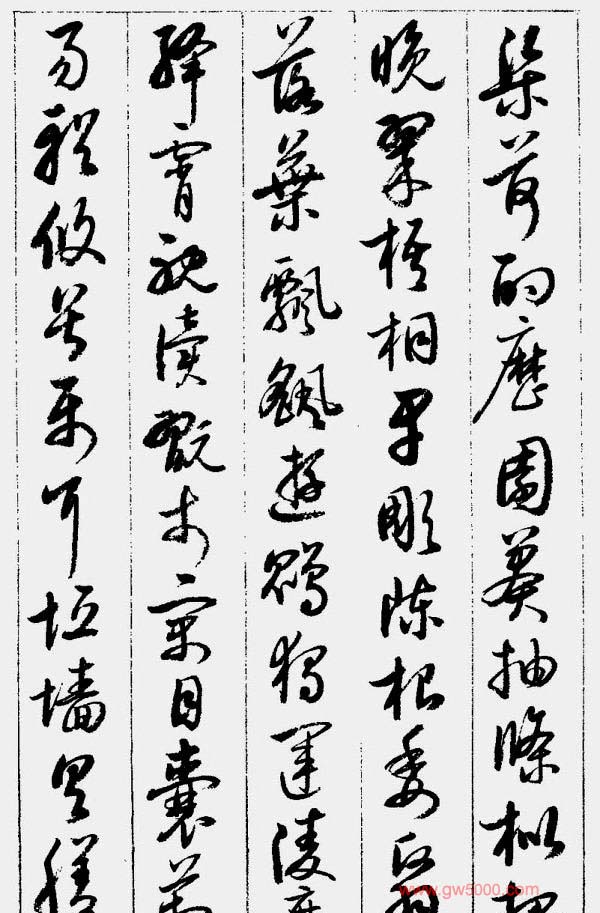 渠荷的歷園莽抽條枇杷
晚翠梧桐早彫陳根委翳
落葉飄颻遊鵾獨運凌摩
絳霄耽讀翫市寓目囊箱
易輶攸畏屬耳垣墻具膳
www.gw5000.com